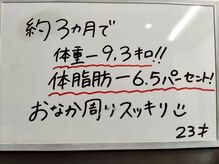 約3ヵ月で
体重ー9.3キロ!!
体脂肪ー6.5パーセント!
おなか周りスッキリ
23才